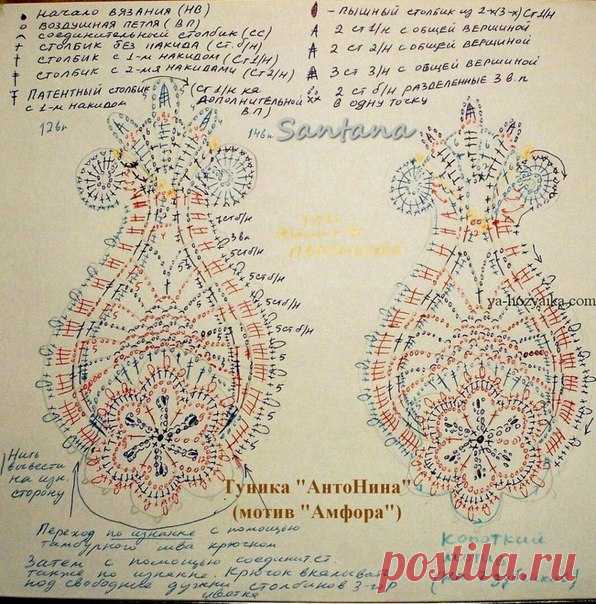 начало вязания (НВ)
воздушная петля (ВП)
соединительной столбик (СС)
столбик без накида (Ст.б/н)
столбик с 1-м накидом (Ст1/н)
столбик с 2-мя накидами (Ст2/н)
Патентный столбик (Ст1/н на
с 1-м накидом дополнительной
ВП)
- пышный столбик из 2х(3-х) Ст1/н
2 ст 1/н с общей вершиной
2 ст 2/н с общей вершиной
3 ст 3/н с общей вершиной
2 ст б/н разделенные 3 вп
в одну точку
Santana
7стб/н
3 вп
5стб/н
5стб/н
5стб/н
5стб/н
5
5
5
ya-hozyaika.com
Нить
вывести
на изн.
сторону
Туника "АнтоНина"
(мотив "Амфора")
Переход по изнанке с помощью
тамбурного шва крючком
Затем с помощью соединит.ст.
также по изнанке. Крючок вкалывать
под свободные дужки столбиков 3-го р
цветка
Короткий
postila.ru